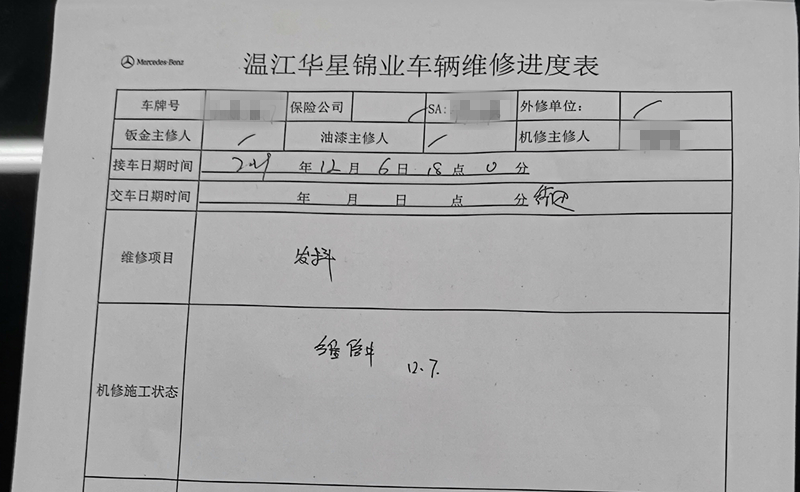 Mercedes-Benz
温江华星锦业车辆维修进度表
车牌号 保险公司 / SA: 外修单位: /
钣金主修人 / 油漆主修人 / 机修主修人
接车日期时间 年 12 月 6 日 18 点 0 分
交车日期时间 年 月 日 点 分
维修项目
发抖
机修施工状态
12.7